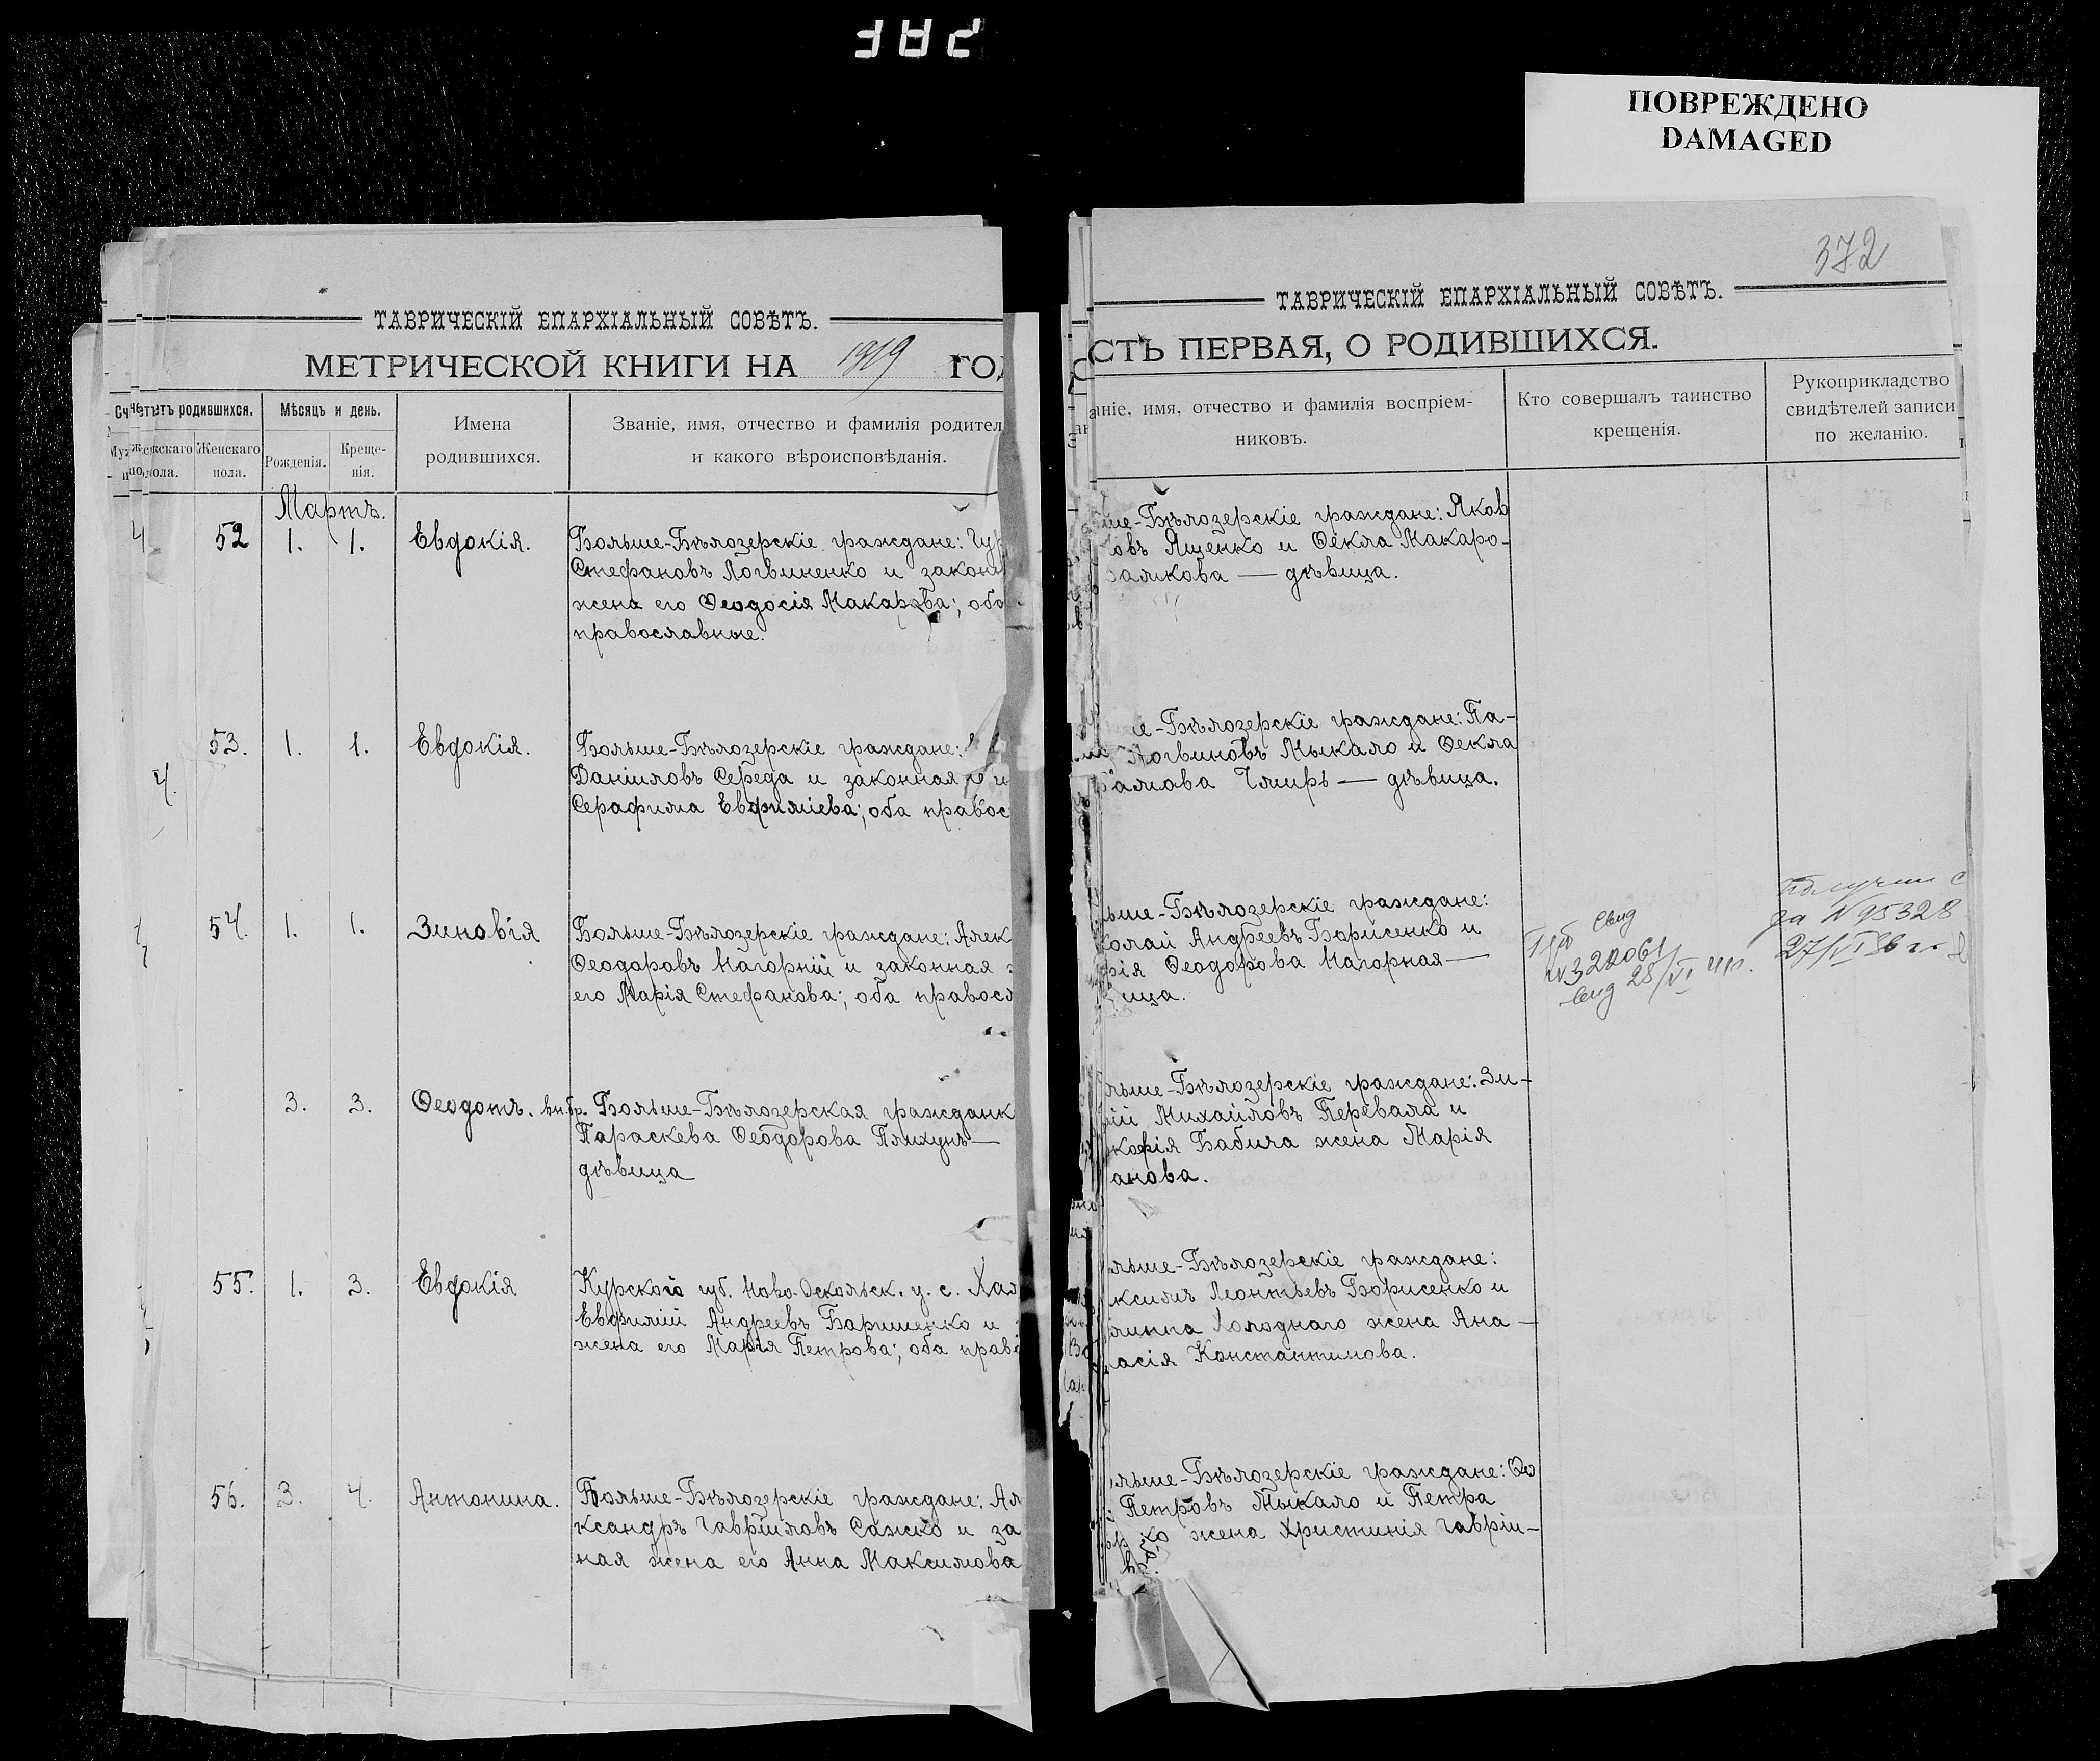 ПОВРЕЖДЕНО
DAMAGED
372
ТАВРИЧЕСКІЙ ЕПАРХІАЛЬНЫЙ СОВѢТЪ.
МЕТРИЧЕСКОЙ КНИГИ НА 1919 ГОД
родившихся. Мѣсяцъ и день. Имена родившихся. Званіе, имя, отчество и фамилія родител и какого вѣроисповѣданія.
Женскаго пола. Рожденія. Крещенія.
Мартъ.
52 1. 1. Евдокія. Больше-Бѣлозерскіе граждане:
Стефановъ Логвиненко и законн
жена его Ѳеодосія Макарова; оба
православные.
53. 1. 1. Евдокія. Больше-Бѣлозерскіе граждане:
Даніиловъ Середа и законная
Серафима Евфиміева; оба правос
54. 1. 1. Зиновія Больше-Бѣлозерскіе граждане: Алек
Ѳеодоровъ Нагорній и законная
его Марія Стефанова; оба правосл
3. 3. Ѳеодотъ. вн.бр. Больше-Бѣлозерская гражданк
Параскева Ѳеодорова Пляхунъ—
дѣвица
55. 1. 3. Евдокія Курской губ. Ново-Оскольск. у. с. Хал
Евфимій Андреевъ Баришенко и
жена его Марія Петрова; оба право
56. 3. 4. Антонина. Больше-Бѣлозерскіе граждане: Ал
ксандръ Гавріиловъ Сажко и за
ная жена его Анна Максимова
ТАВРИЧЕСКІЙ ЕПАРХІАЛЬНЫЙ СОВѢТЪ.
СТЬ ПЕРВАЯ, О РОДИВШИХСЯ.
аніе, имя, отчество и фамилія воспріемниковъ. Кто совершалъ таинство крещенія. Рукоприкладство свидѣтелей записи по желанію.
ше-Бѣлозерскіе граждане: Яков
овъ Ященко и Ѳекла Макаро-
алкова — дѣвица.
е-Бѣлозерскіе граждане: Па-
Логвиновъ Мыкало и Ѳекла
Чмирь — дѣвица.
ьше-Бѣлозерскіе граждане:
колай Андреевъ Борисенко и
рія Ѳеодорова Нагорная—
ица.
свид
28/VI
за N 95328
27/VI 86 г.
льше-Бѣлозерскіе граждане: Зи-
Михайловъ Перевала и
кофія Бабича жена Марія
анова.
льше-Бѣлозерскіе граждане:
ксимъ Леонтьевъ Борисенко и
липпа Холоднаго жена Ана-
асія Константинова.
ольше-Бѣлозерскіе граждане: Ѳо
Петровъ Мыкало и Петра
ко жена Христинія Гавріи-